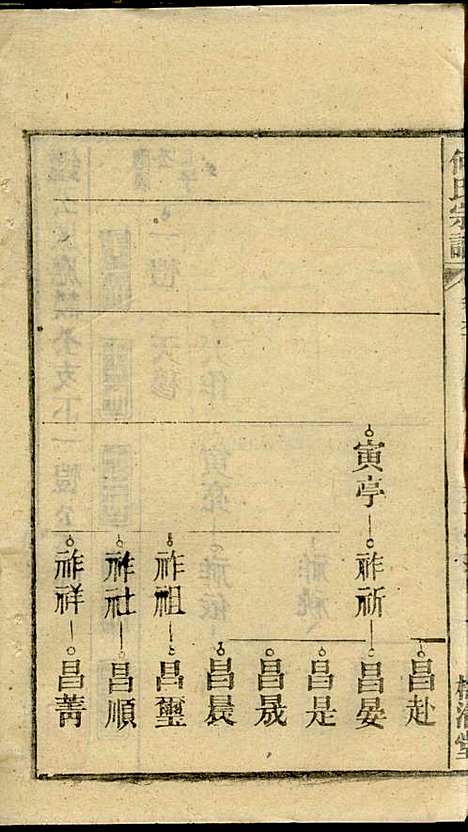 何氏宗譜
寅亭 祚祈
昌赴
昌晏
昌是
昌晟
昌㫳
祚祖 昌璽
祚社 昌順
祚祥 昌菁